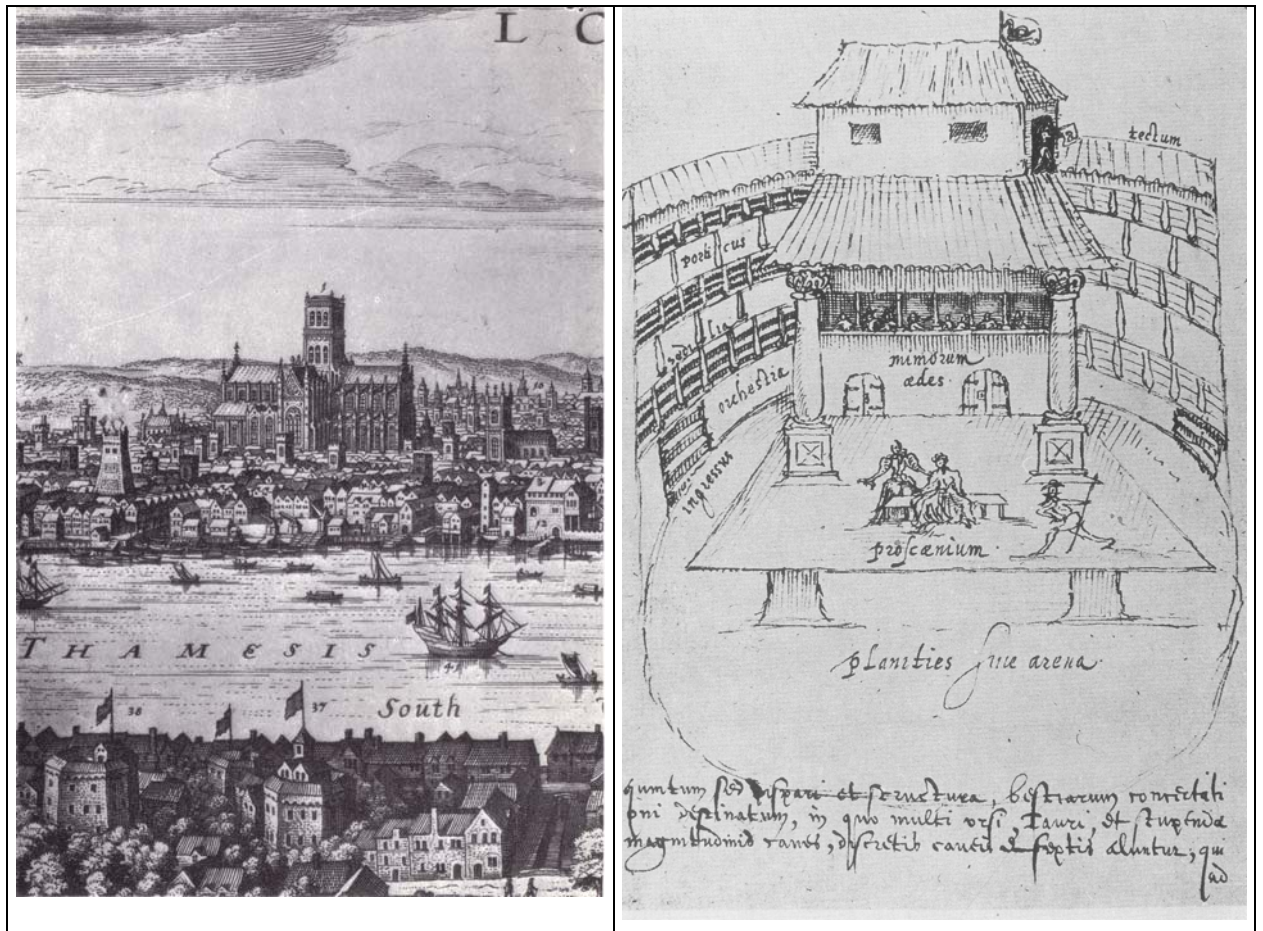 L O
THAMESIS
38
37
South
41
tectum
porticus
sedilia
orchestra
mimorum
ædes
ingressus
proscænium
planities siue arena
quintum sed dispari et structura, bestiarum concertati
oni destinatum, in quo multi vrsi, Tauri, et stupendæ
magnitudinis canes, discretis caueis & septis aluntur, qui
ad